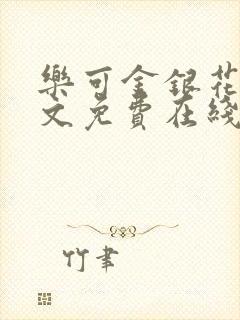 樂可金銀花
文免費在綫
竹聿